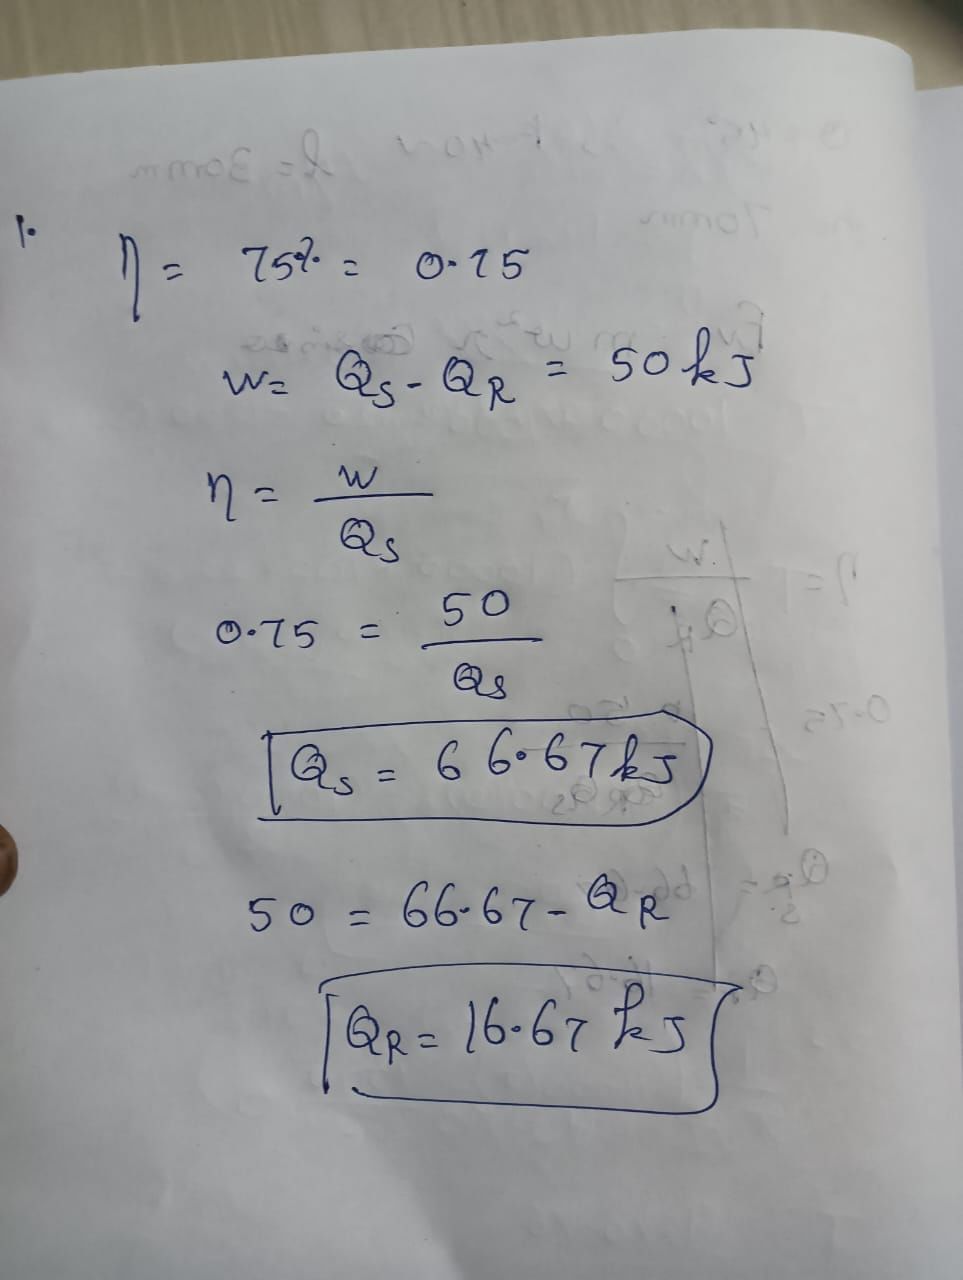 1.
η = 75% = 0.75
W = Qs - QR = 50 kJ
η = W / Qs
0.75 = 50 / Qs
Qs = 66.67 kJ
50 = 66.67 - QR
QR = 16.67 kJ